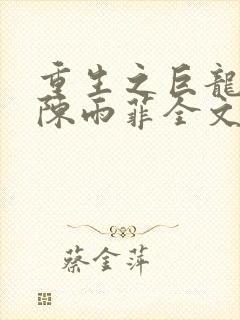 重生之巨龍
陳雨菲全文
蔡金萍